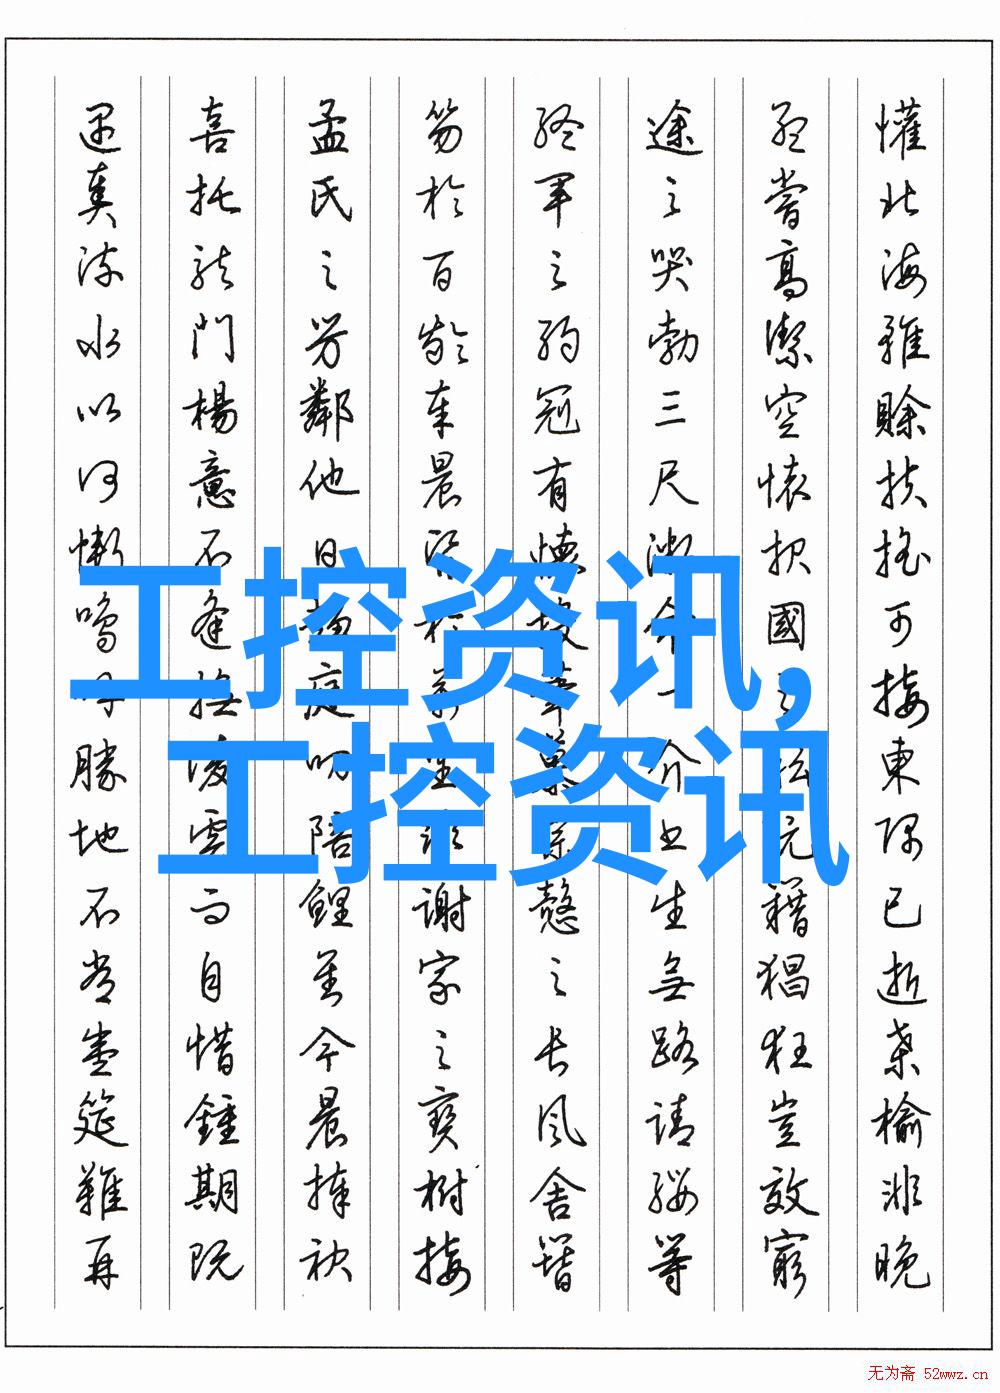 懽北海雖賒扶摇可接東隅已逝桑榆非晚
孟嘗高潔空懷报國之阮籍猖狂豈效窮
途之哭勃三尺微命一介書生無路請纓等
終軍之弱冠有懷投筆慕宗慤之長風舍簪
笏於百齡奉晨昏於萬里非謝家之寶樹接
孟氏之芳鄰他日趨庭叨陪鯉對今晨捧袂
喜托龍門楊意不逢撫凌雲而自惜鍾期既
遇奏流水以何慚嗚呼勝地不常盛筵難再
工控资讯,
工控资讯
无为斋 52wwz.cn